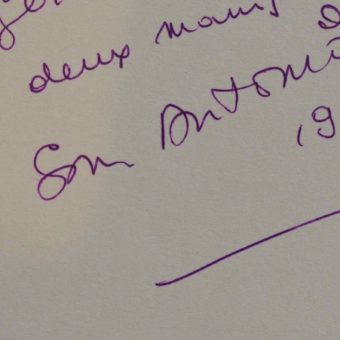 deux mains
San Antonio
, 9